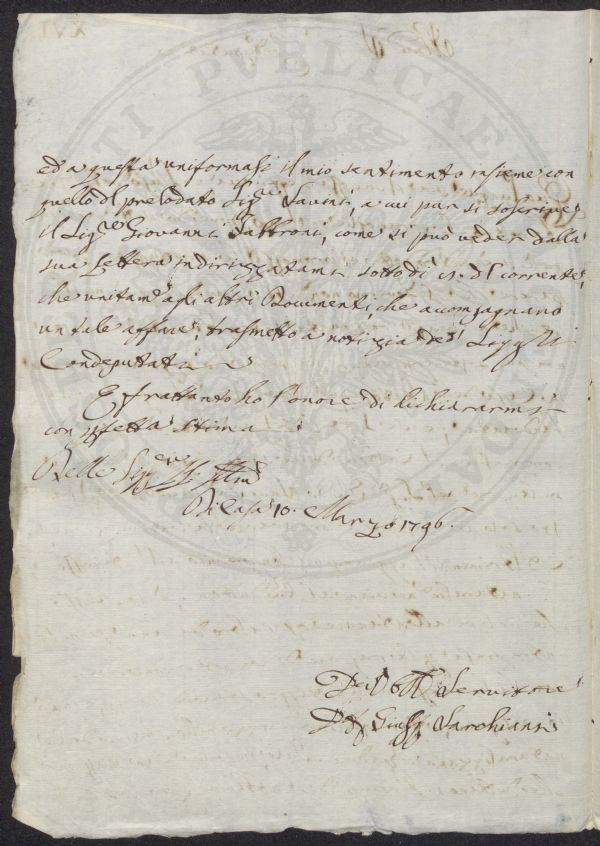 ed a questa uniformasi il mio sentimento insieme con
quello dl prelodato Sigre Savini, a cui pur si soscrive
il Sigre Giovanni Fabbroni, come si può vedere dalla
sua Lettera indirizzatami sotto dì dl corrente,
che unitame agli altri Documenti, che accompagnano
un tale affare, trasmetto a notizia de' Sigg
Condeputati
E frattanto ho l'onore di dichiararmi
con pfetta stima
Delle
Di Casa 10. Marzo 1796.
Servitore
Giusp Sarchiani